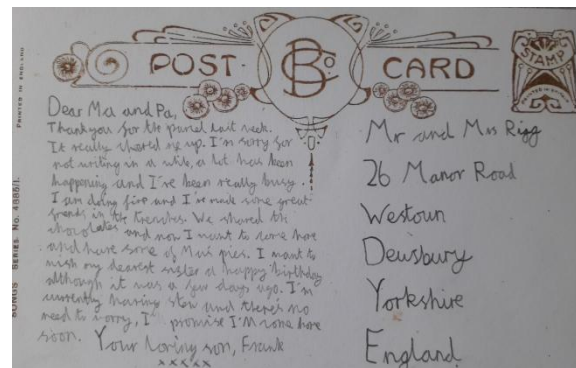 POST CARD
B Co
STAMP
PRINTED IN ENGLAND
SONGS SERIES No. 4885/1.
Dear Ma and Pa,
Thankyou for the parcel last week.
It really cheered me up. I'm sorry for
not writing in a while, a lot has been
happening and I've been really busy.
I am doing fine and I've made some great
friends in the trenches. We shared the
chocolates and now I want to come home
and have some of Ma's pies. I want to
wish my dearest sister a happy birthday
although it was a few days ago. I'm
currently having stew and there's no
need to worry, I promise I'll come home
soon. Your loving son, Frank
xxxxx
Mr and Mrs Rigg
26 Manor Road
Westoun
Dewsbury
Yorkshire
England